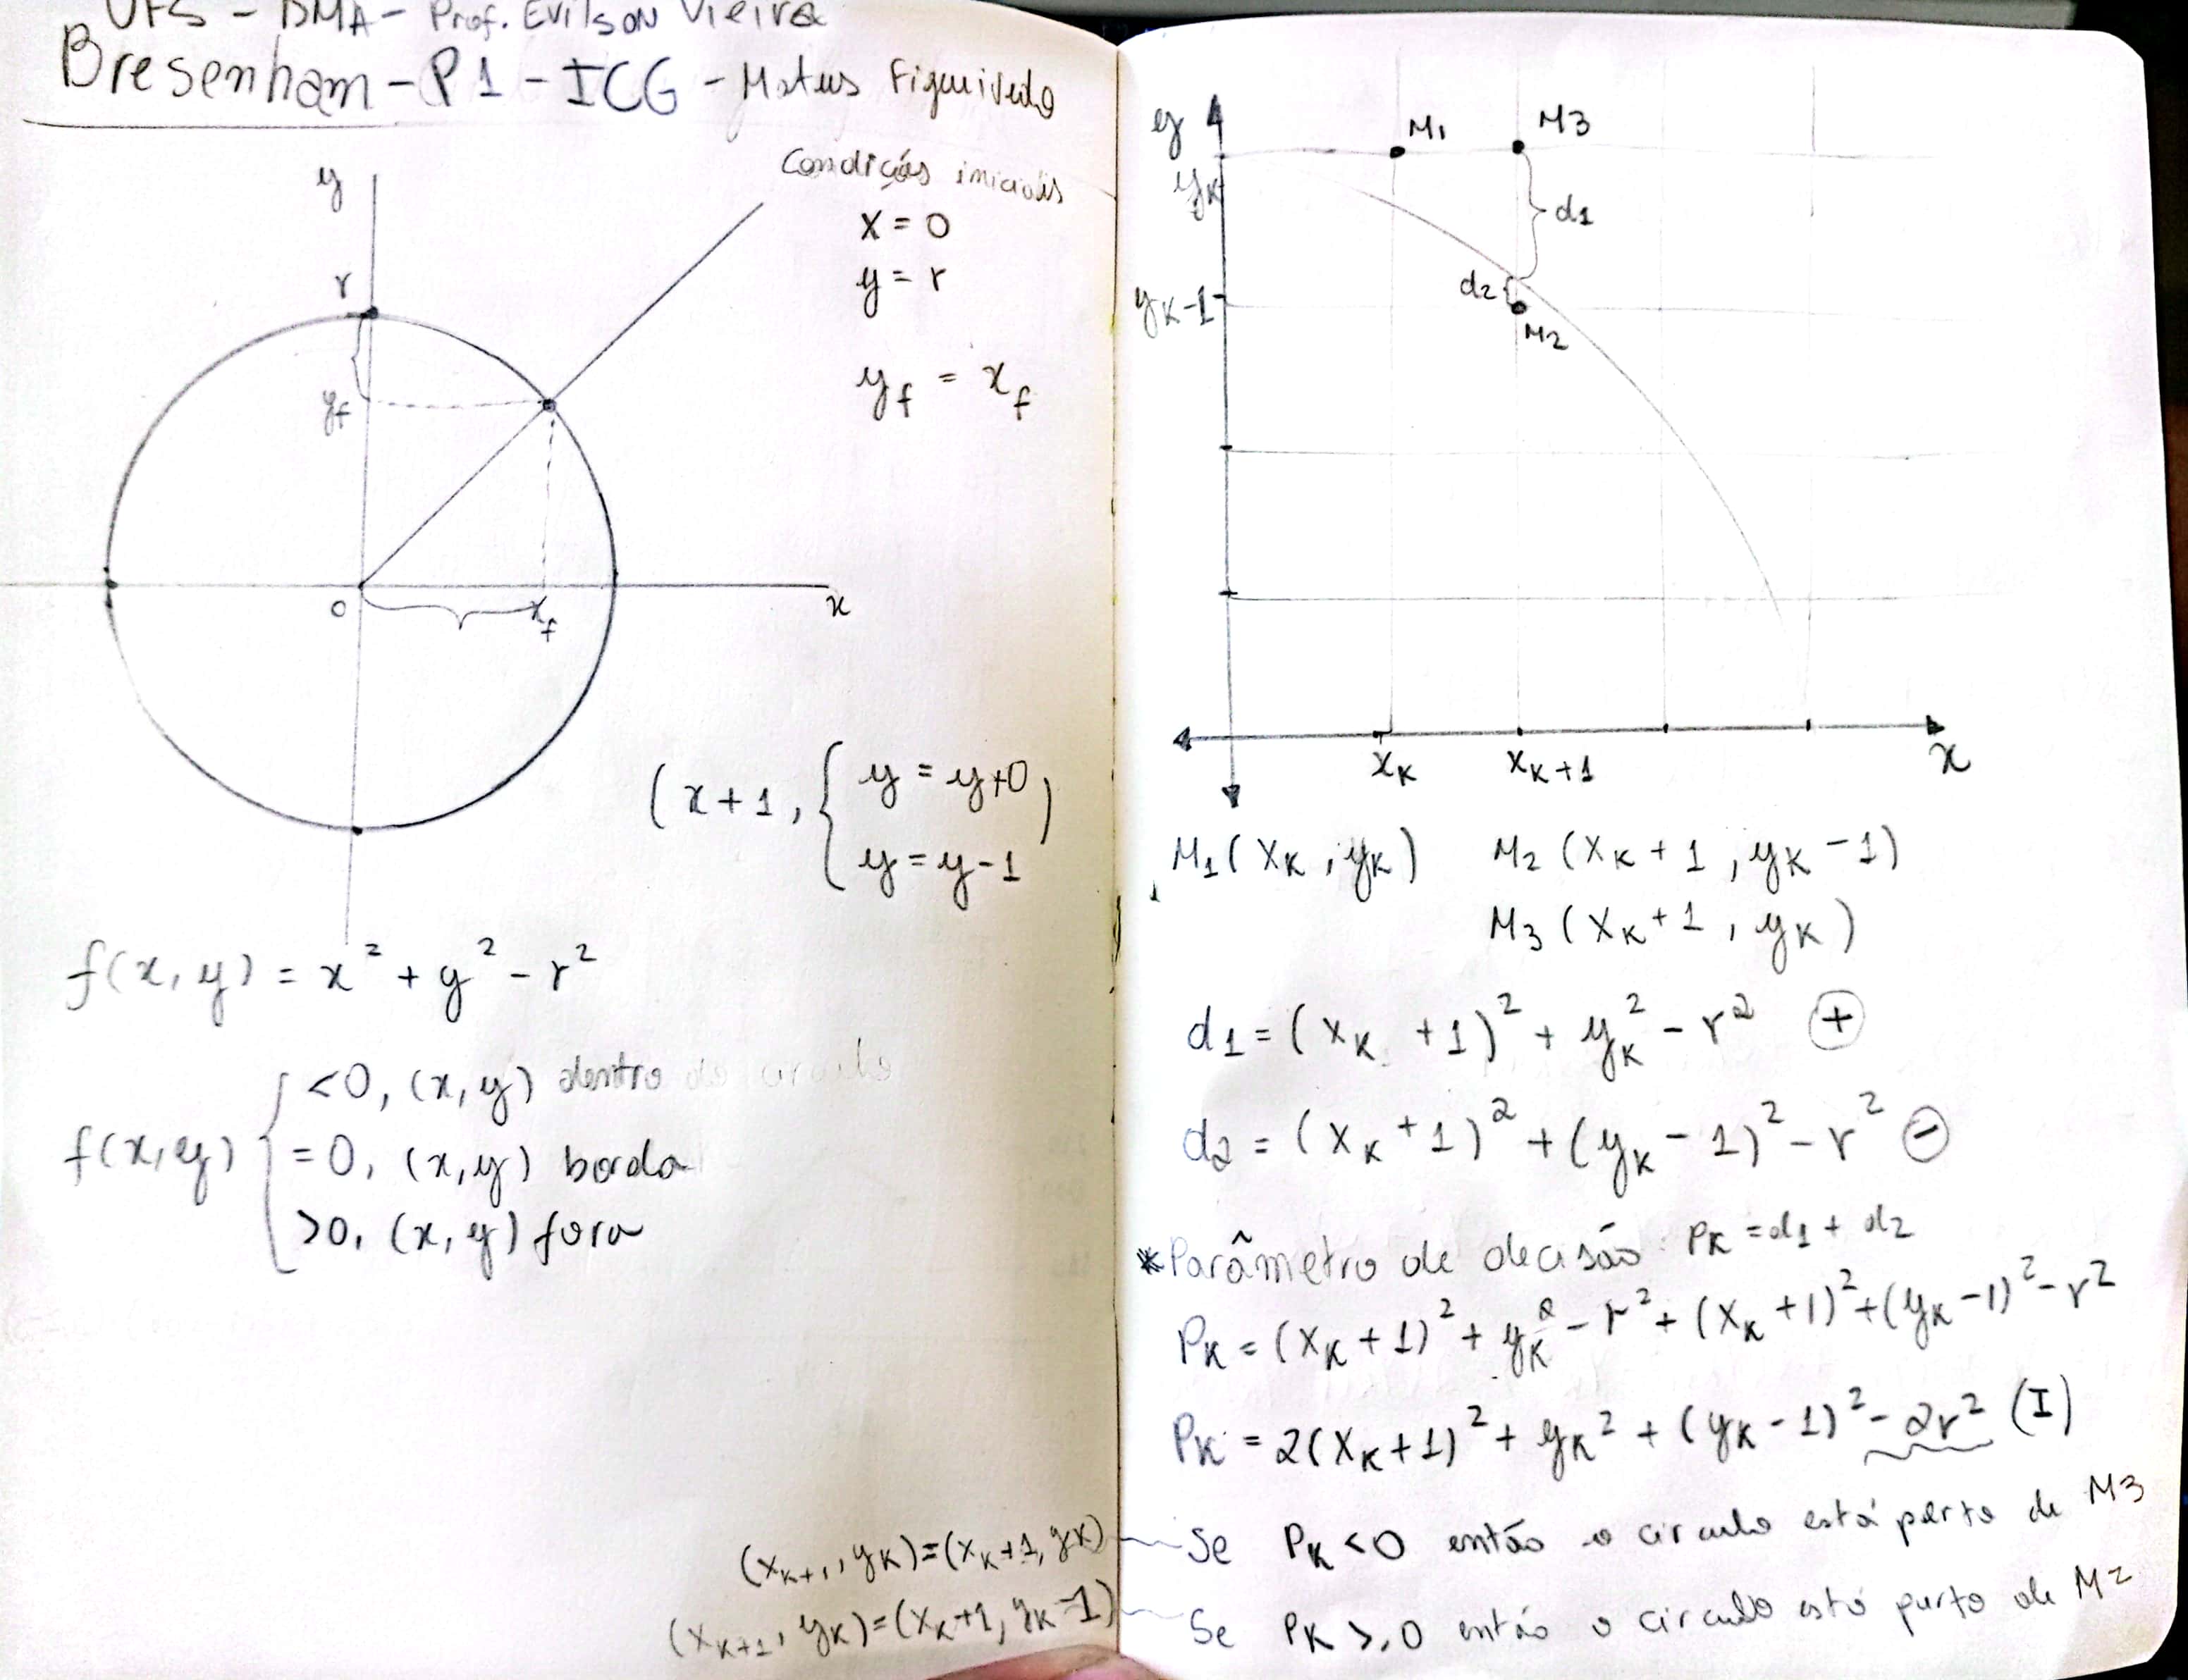 UFS - DMA - Prof. Evilson Vieira
Bresenham - P1 - ICG - Mateus Figueiredo
Condições iniciais
x = 0
y = r
y_f = x_f
y
r
y_f
0
x_f
x
(x+1, { y = y+0
y = y-1 )
f(x, y) = x² + y² - r²
f(x, y) { <0, (x, y) dentro do circulo
=0, (x, y) borda
>0, (x, y) fora
(x_{K+1}, y_K) = (x_K+1, y_K)
(x_{K+1}, y_K) = (x_K+1, y_K-1)
y
M1 M3
y_K
d1
d2
y_K-1
M2
x_K x_K+1 x
M1(x_K, y_K) M2(x_K+1, y_K-1)
M3(x_K+1, y_K)
d1 = (x_K+1)² + y_K² - r² (+)
d2 = (x_K+1)² + (y_K-1)² - r² (-)
*Parâmetro de decisão: P_K = d1 + d2
P_K = (x_K+1)² + y_K² - r² + (x_K+1)² + (y_K-1)² - r²
P_K = 2(x_K+1)² + y_K² + (y_K-1)² - 2r² (I)
Se P_K < 0 então o circulo está perto de M3
Se P_K >, 0 então o circulo está perto de M2